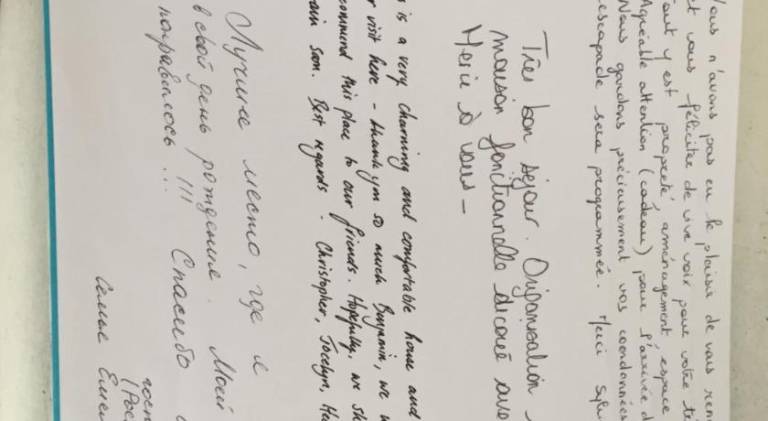 Nous n'avons pas eu le plaisir de vous
et vous féliciter de vive voix pour votre
Tout y est propreté, aménagement espace
Agréable attention (cadeau) pour l'arrivée
Nous gardons précieusement vos coordonnées
escapade sera programmée. Merci
Très bon séjour. Organisation
maison fonctionnelle décoré
Merci à vous -
is a very charming and comfortable house and
visit here - thank you so much Benjamin, we
recommend this place to our friends. Hopefully, we
soon. Best regards - Christopher, Jocelyn,
Лучшее место, где я
в свой день рождение. Мой
понравилось ... !!! Спасибо
Семье